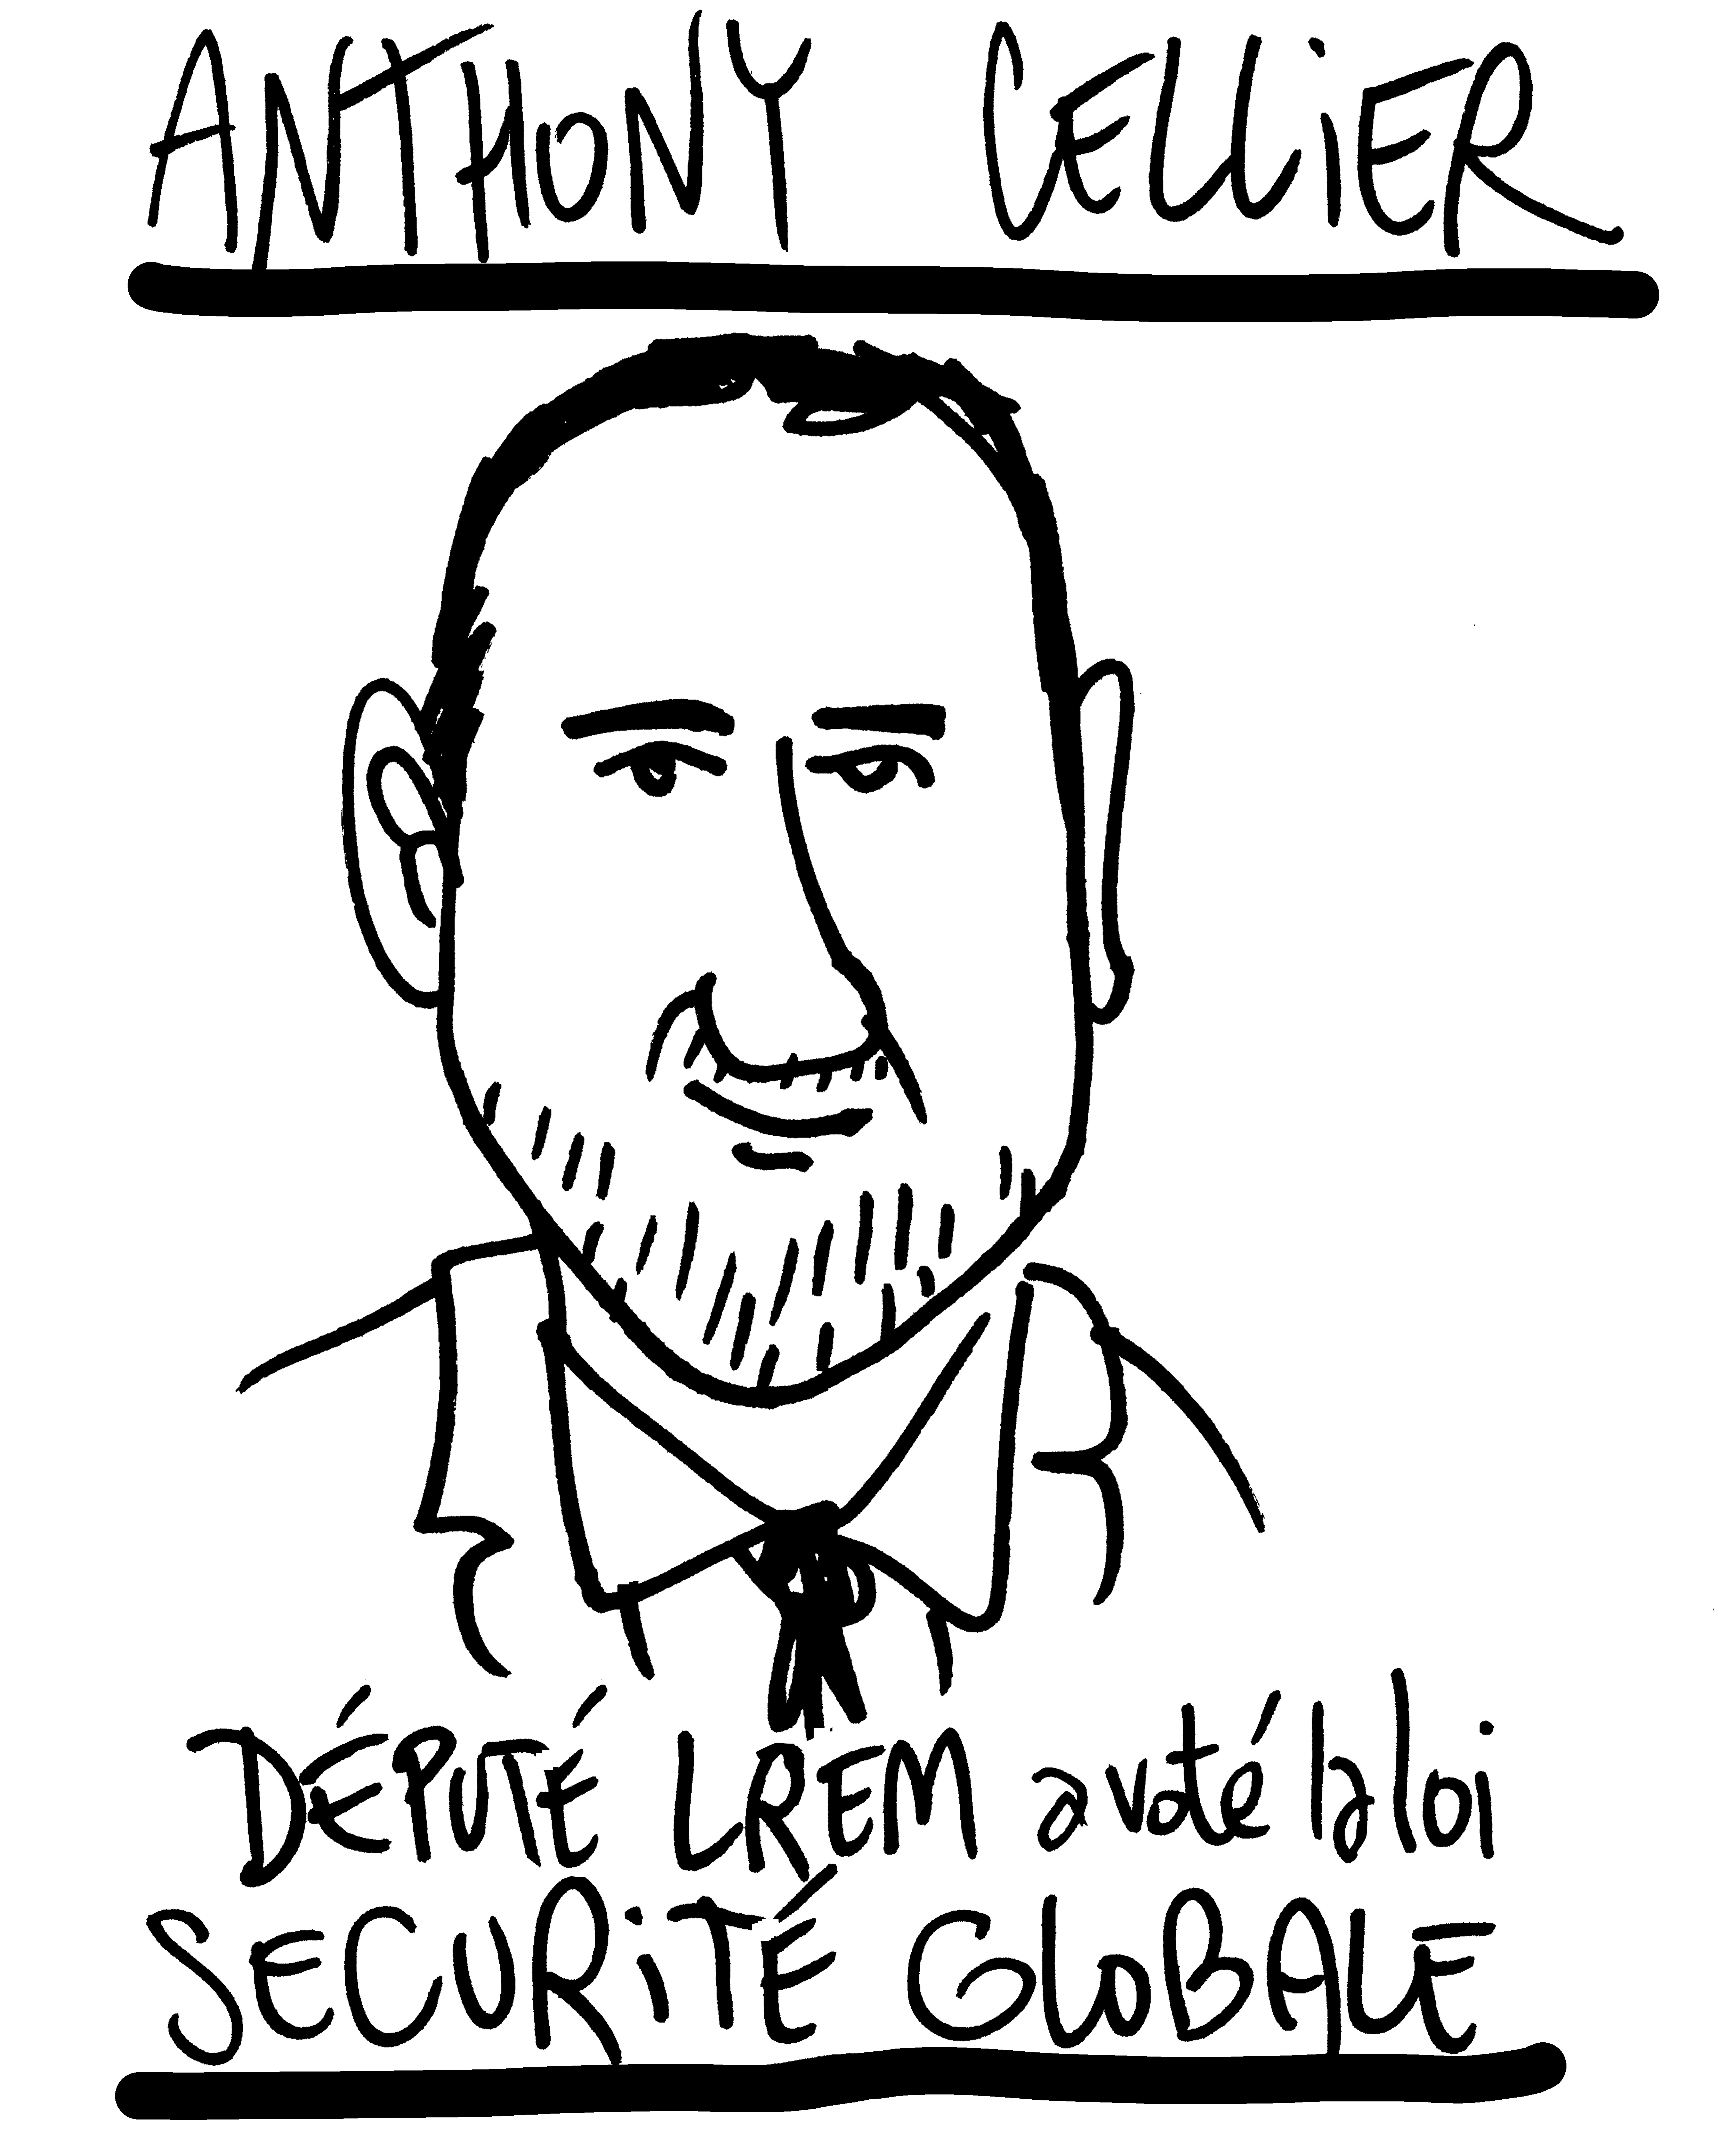 ANTHONY CELLiER
DÉPUTÉ LREM a voté la loi
SECURiTÉ GLOBALE